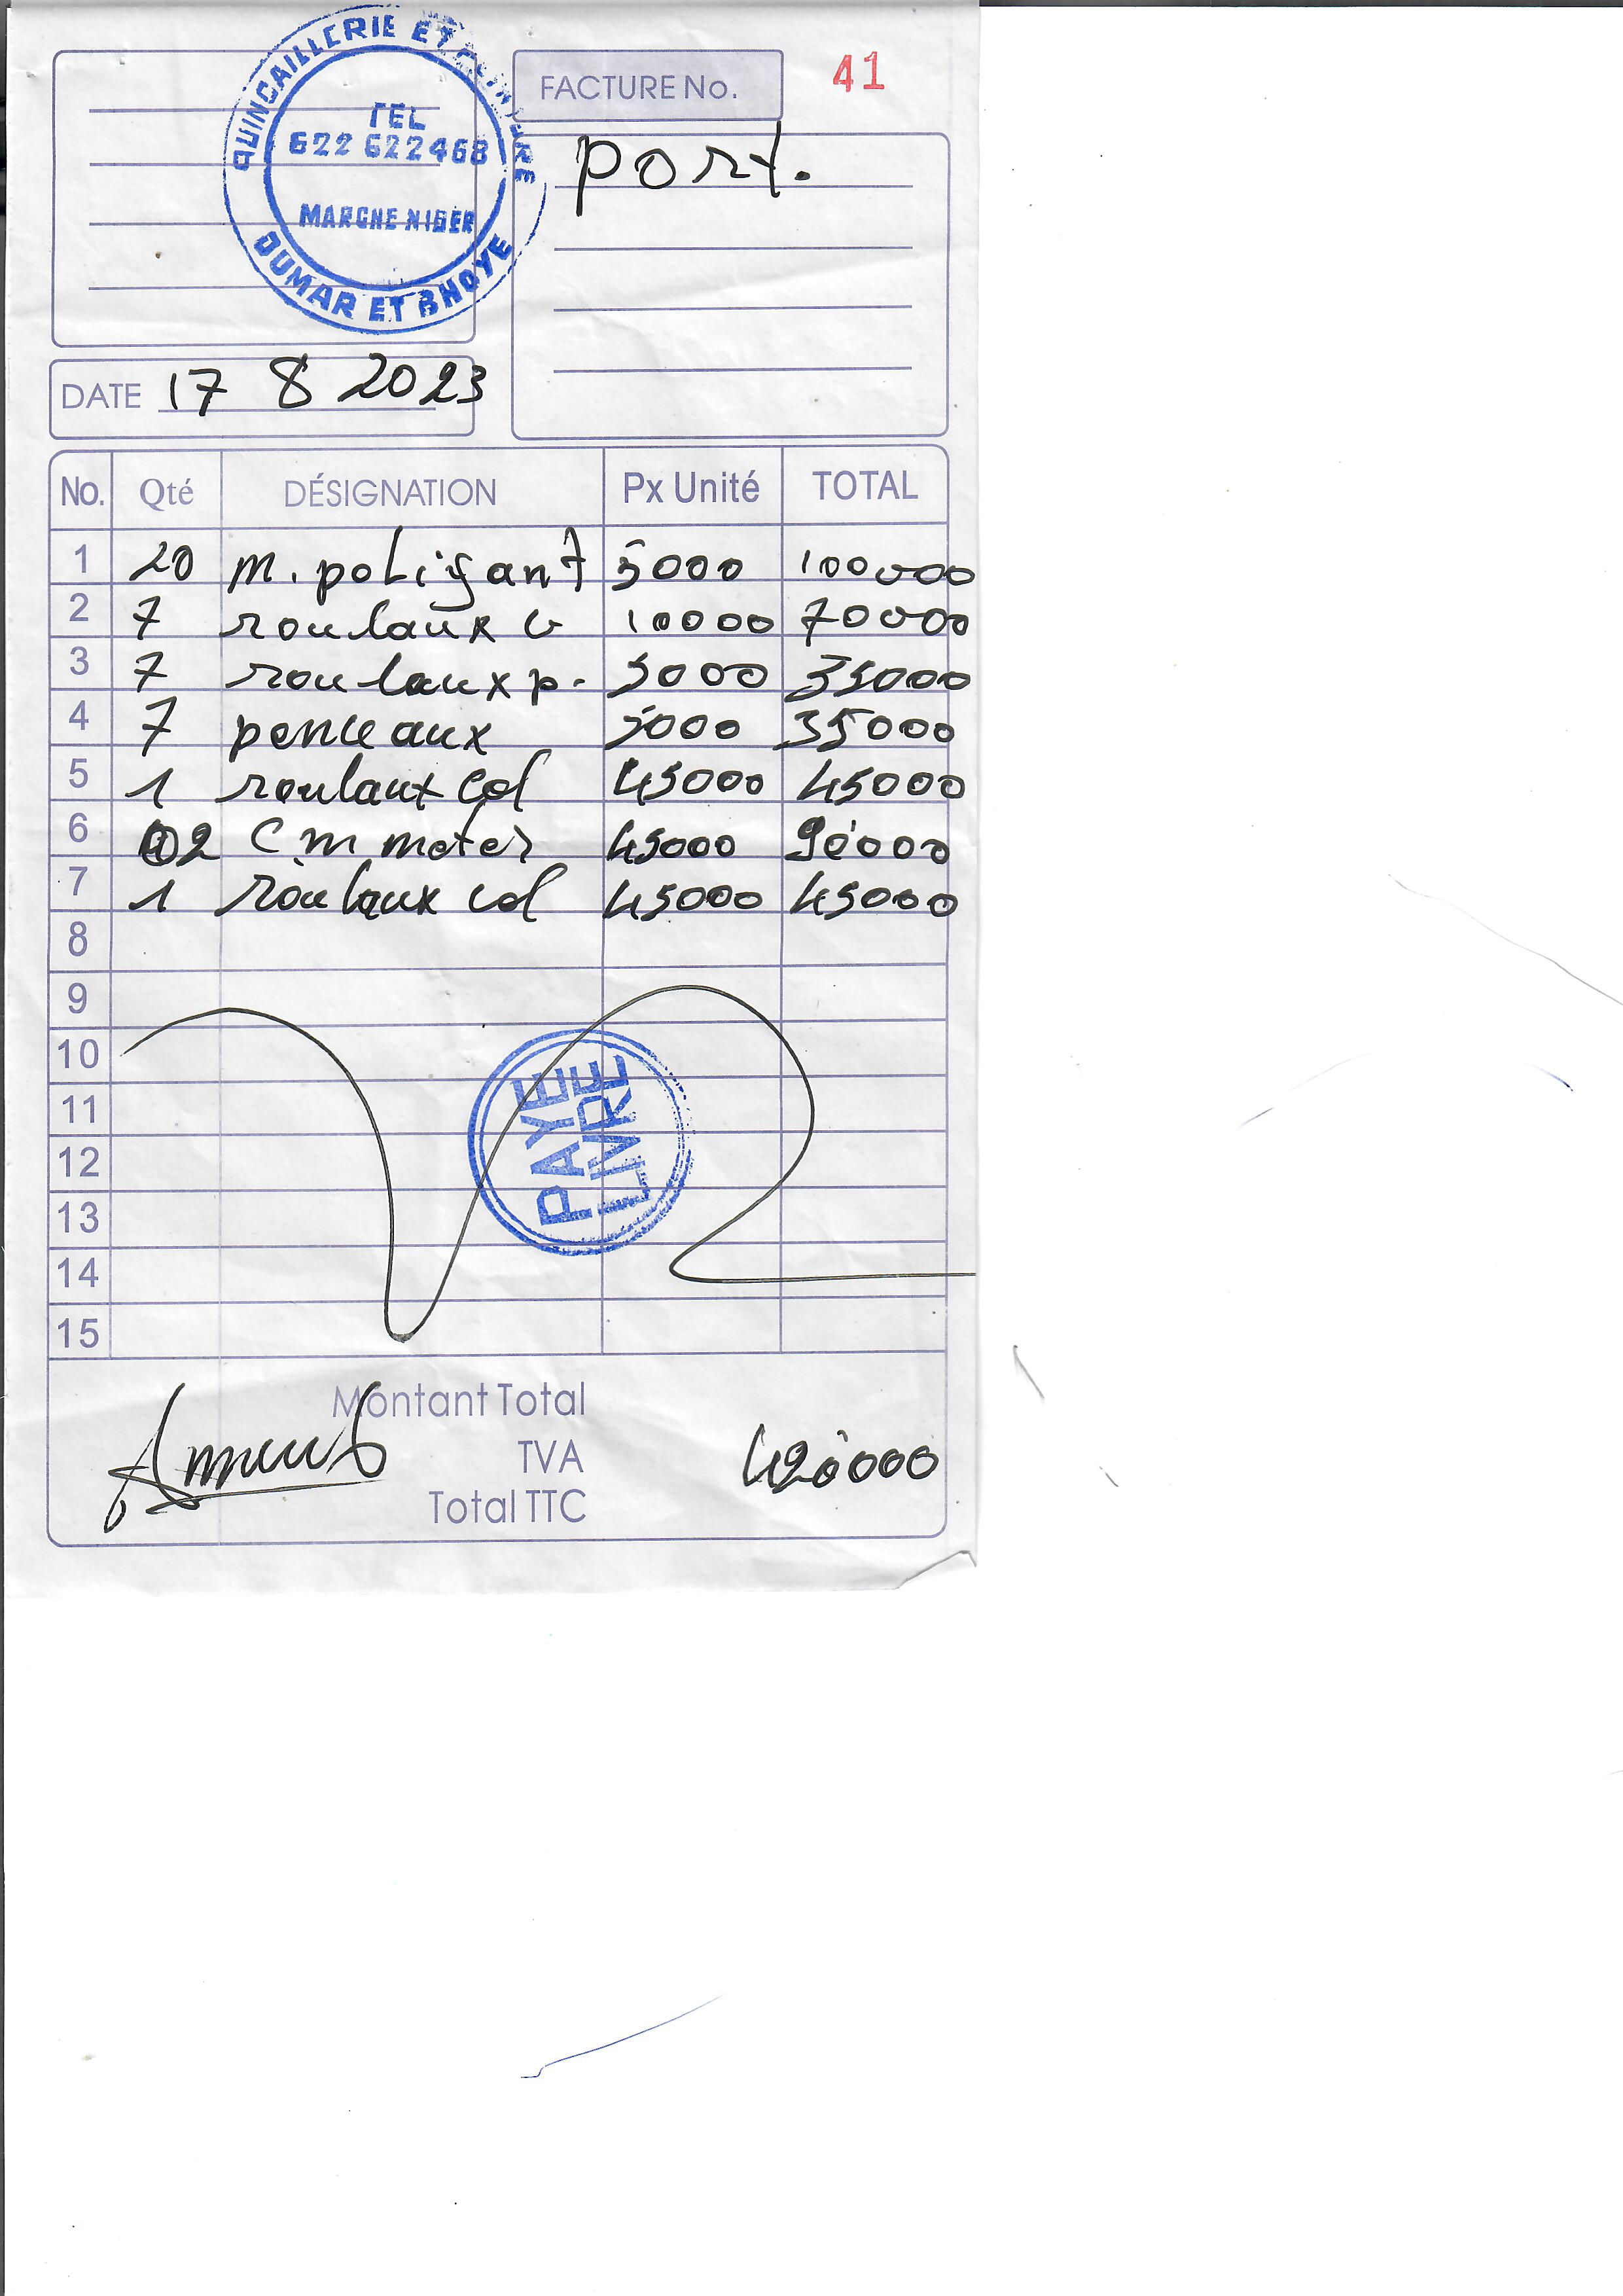 QUINCAILLERIE ET PEINTURE
TEL
622 622468
MARCHE NIGER
OUMAR ET BHOYE
FACTURE No. 41
port.
DATE 17 8 2023
No. Qté DÉSIGNATION Px Unité TOTAL
1 20 m. poligant 5000 100000
2 7 roulaux G 10000 70000
3 7 roulaux p. 5000 35000
4 7 penceaux 5000 35000
5 1 roulaux col 45000 45000
6 02 C m meter 45000 90000
7 1 roulaux col 45000 45000
8
9
10
11
12
13
14
15
PAYE
LIVRE
Montant Total
TVA 420000
Total TTC